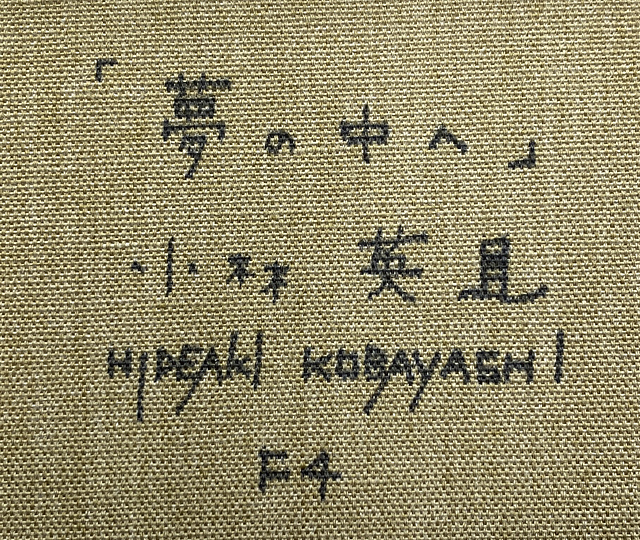 「夢の中へ」
小林 英且
HIDEAKI KOBAYASHI
F4